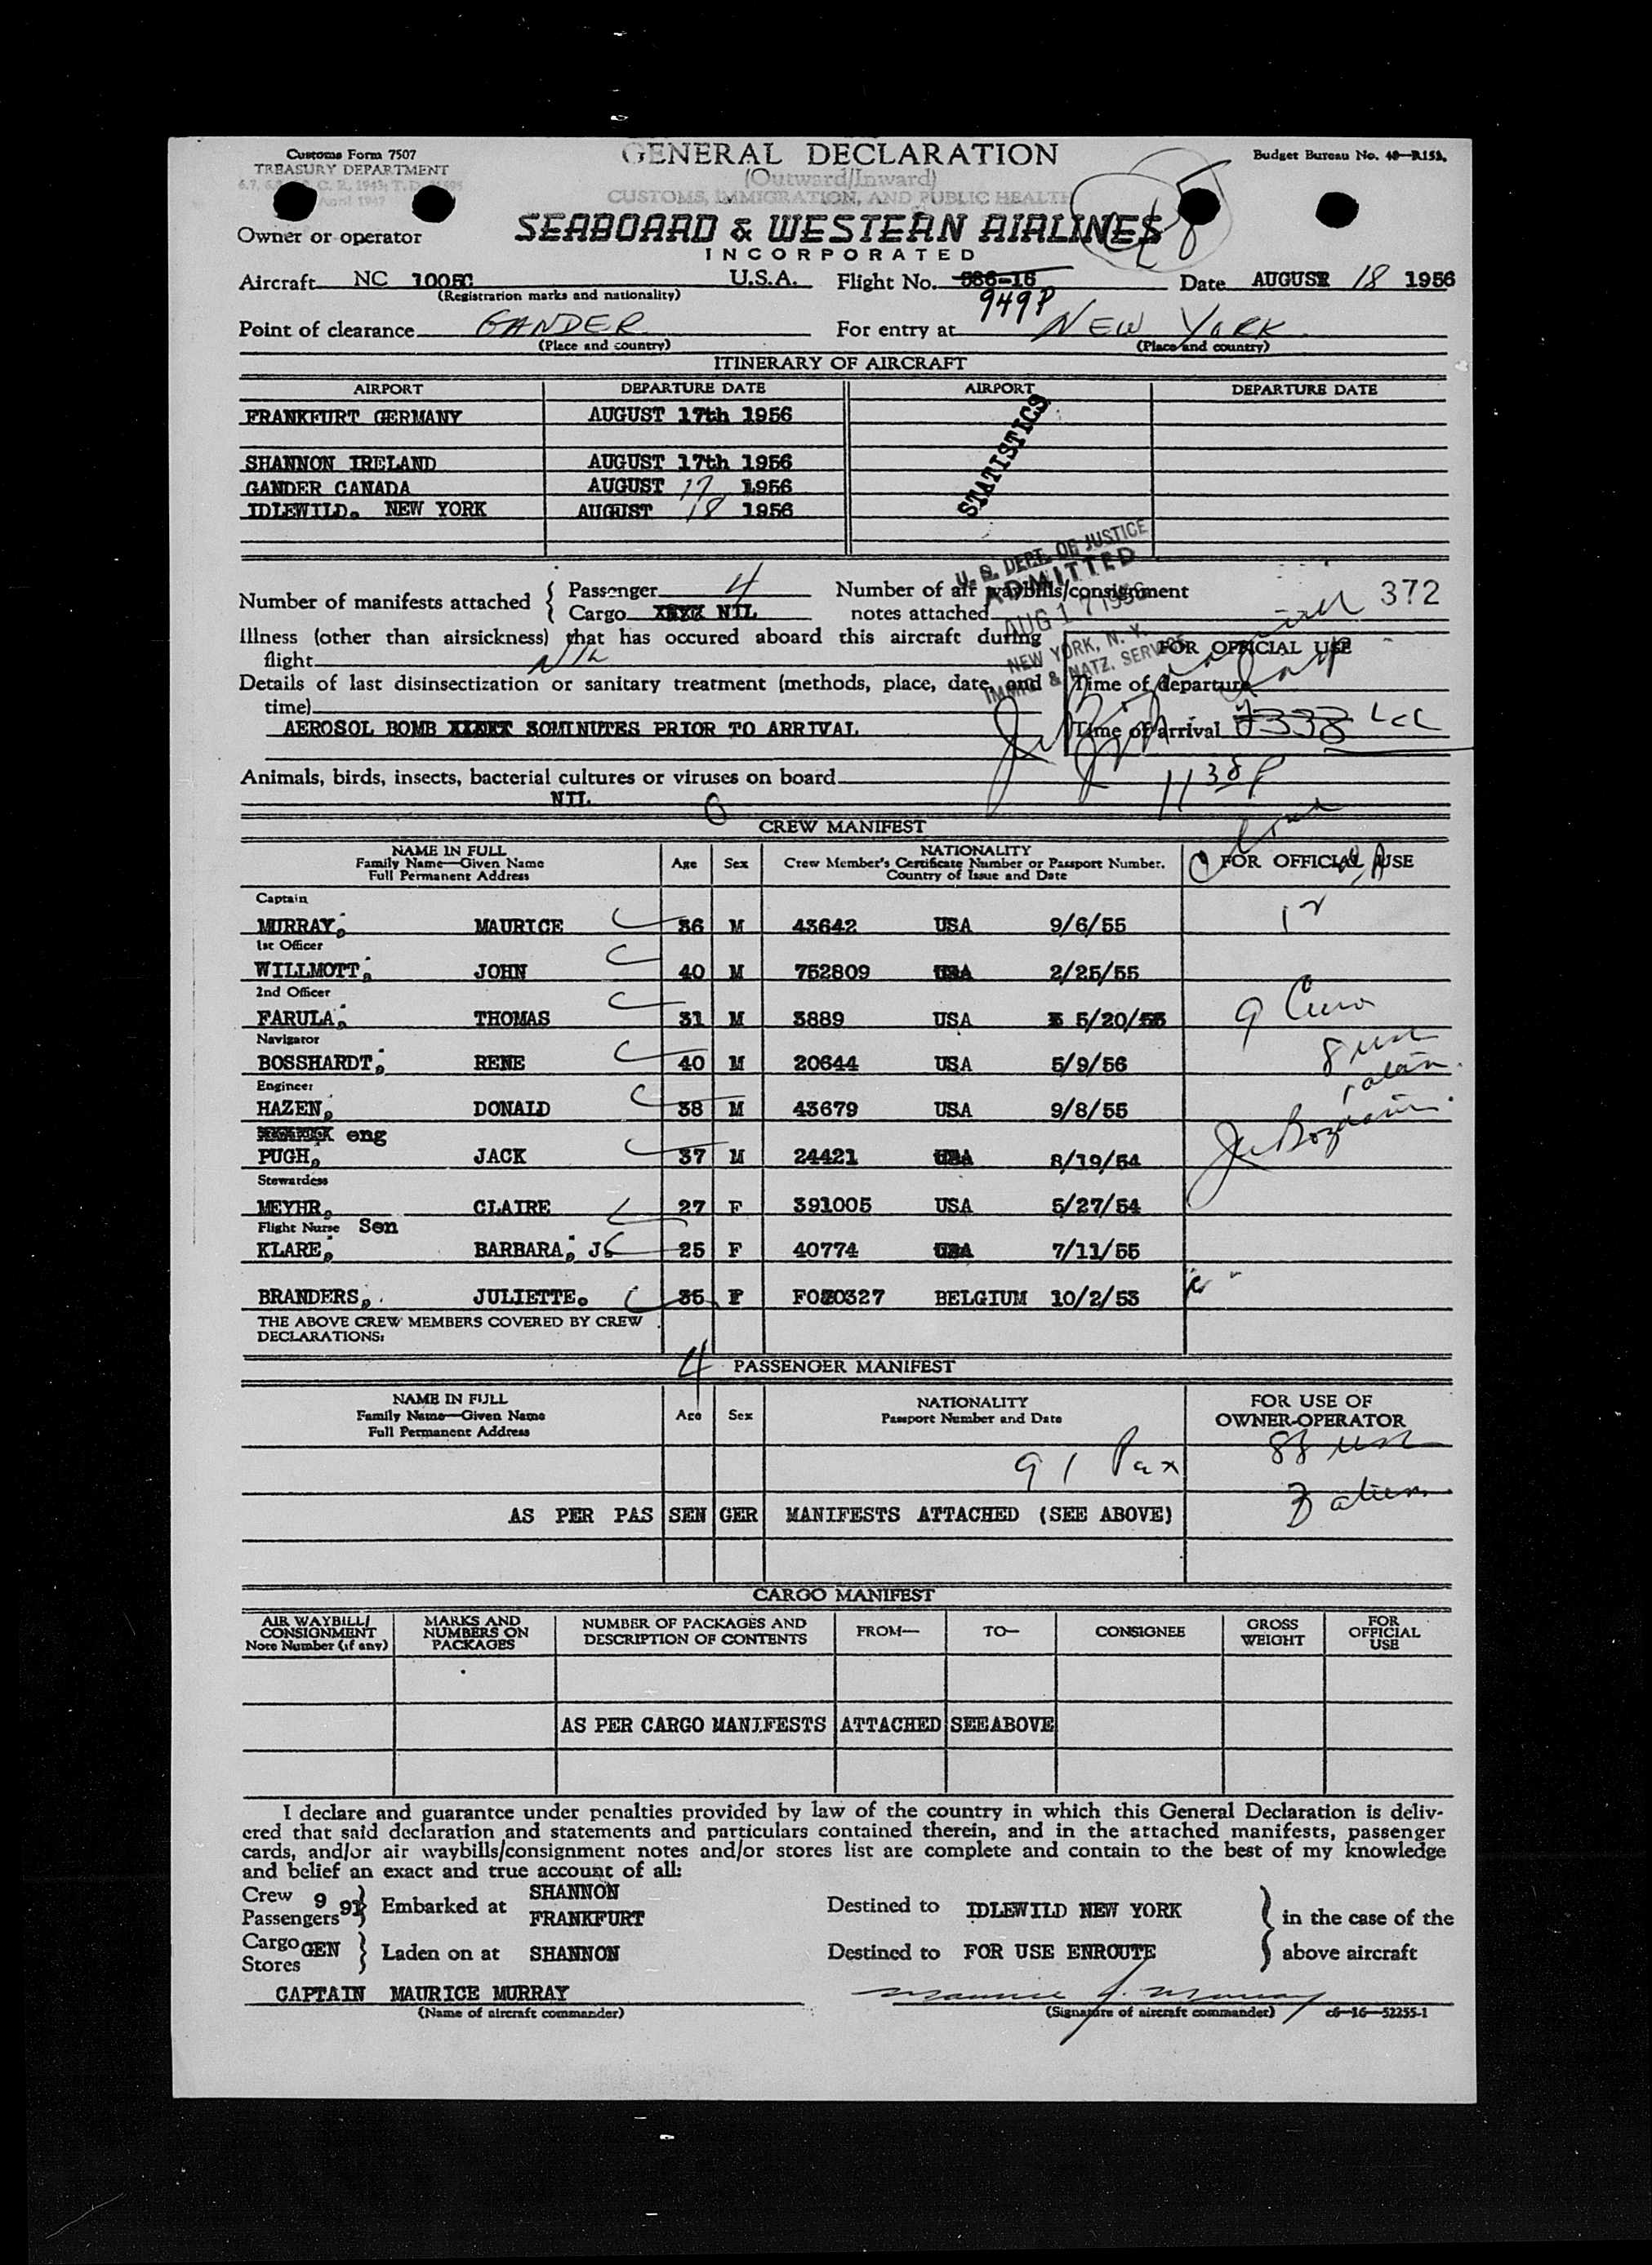 Customs Form 7507
TREASURY DEPARTMENT
April 1947
GENERAL DECLARATION
(Outward/Inward)
CUSTOMS, IMMIGRATION, AND PUBLIC HEALTH
Budget Bureau No. 48—R153.
Owner or operator
SEABOARD & WESTERN AIRLINES
INCORPORATED
Aircraft NC 1005C U.S.A. Flight No. 586-16 Date AUGUST 18 1956
(Registration marks and nationality)
949P
Point of clearance GANDER For entry at NEW YORK
(Place and country) (Place and country)
ITINERARY OF AIRCRAFT
AIRPORT DEPARTURE DATE AIRPORT DEPARTURE DATE
FRANKFURT GERMANY AUGUST 17th 1956
SHANNON IRELAND AUGUST 17th 1956
GANDER CANADA AUGUST 17 1956
IDLEWILD. NEW YORK AUGUST 18 1956
STATISTICS
U. S. DEPT. OF JUSTICE
ADMITTED
AUG 17 1956
NEW YORK, N. Y.
IMMIG & NATZ. SERVICE
Number of manifests attached { Passenger 4 Number of air waybills/consignment 372
Cargo NIL notes attached
Illness (other than airsickness) that has occured aboard this aircraft during
flight NIL
FOR OFFICIAL USE
Details of last disinsectization or sanitary treatment (methods, place, date, and Time of departure
time)
AEROSOL BOMB 30MINUTES PRIOR TO ARRIVAL Time of arrival 2338 LCL
Animals, birds, insects, bacterial cultures or viruses on board 1138P
NIL
CREW MANIFEST
NAME IN FULL
Family Name—Given Name
Full Permanent Address
Age Sex
NATIONALITY
Crew Member's Certificate Number or Passport Number.
Country of Issue and Date
FOR OFFICIAL USE
Captain
MURRAY, MAURICE 36 M 43642 USA 9/6/55
1st Officer
WILLMOTT, JOHN 40 M 752809 USA 2/25/55
2nd Officer
FARULA, THOMAS 31 M 3889 USA 5/20/
9 Crew
Navigator
BOSSHARDT, RENE 40 M 20644 USA 5/9/56
8 USC
1 alien
Engineer
HAZEN, DONALD 38 M 43679 USA 9/8/55
eng
PUGH, JACK 37 M 24421 USA 8/19/54
Stewardess
MEYHR, CLAIRE 27 F 391005 USA 5/27/54
Flight Nurse Sen
KLARE, BARBARA, J. 25 F 40774 USA 7/11/55
BRANDERS, JULIETTE. 35 F BELGIUM 10/2/53
THE ABOVE CREW MEMBERS COVERED BY CREW
DECLARATIONS:
4 PASSENGER MANIFEST
NAME IN FULL
Family Name—Given Name
Full Permanent Address
Age Sex
NATIONALITY
Passport Number and Date
FOR USE OF
OWNER-OPERATOR
88 USC
91 Pax
3 aliens
AS PER PAS SEN GER MANIFESTS ATTACHED (SEE ABOVE)
CARGO MANIFEST
AIR WAYBILL/
CONSIGNMENT
Note Number (if any)
MARKS AND
NUMBERS ON
PACKAGES
NUMBER OF PACKAGES AND
DESCRIPTION OF CONTENTS
FROM— TO— CONSIGNEE
GROSS
WEIGHT
FOR
OFFICIAL
USE
AS PER CARGO MANIFESTS ATTACHED SEEABOVE
I declare and guarantee under penalties provided by law of the country in which this General Declaration is deliv-
ered that said declaration and statements and particulars contained therein, and in the attached manifests, passenger
cards, and/or air waybills/consignment notes and/or stores list are complete and contain to the best of my knowledge
and belief an exact and true account of all:
Crew 9 SHANNON
Passengers 91 } Embarked at FRANKFURT Destined to IDLEWILD NEW YORK } in the case of the
Cargo GEN
Stores } Laden on at SHANNON Destined to FOR USE ENROUTE above aircraft
CAPTAIN MAURICE MURRAY Maurice J. Murray
(Name of aircraft commander) (Signature of aircraft commander) c6—16—52255-1